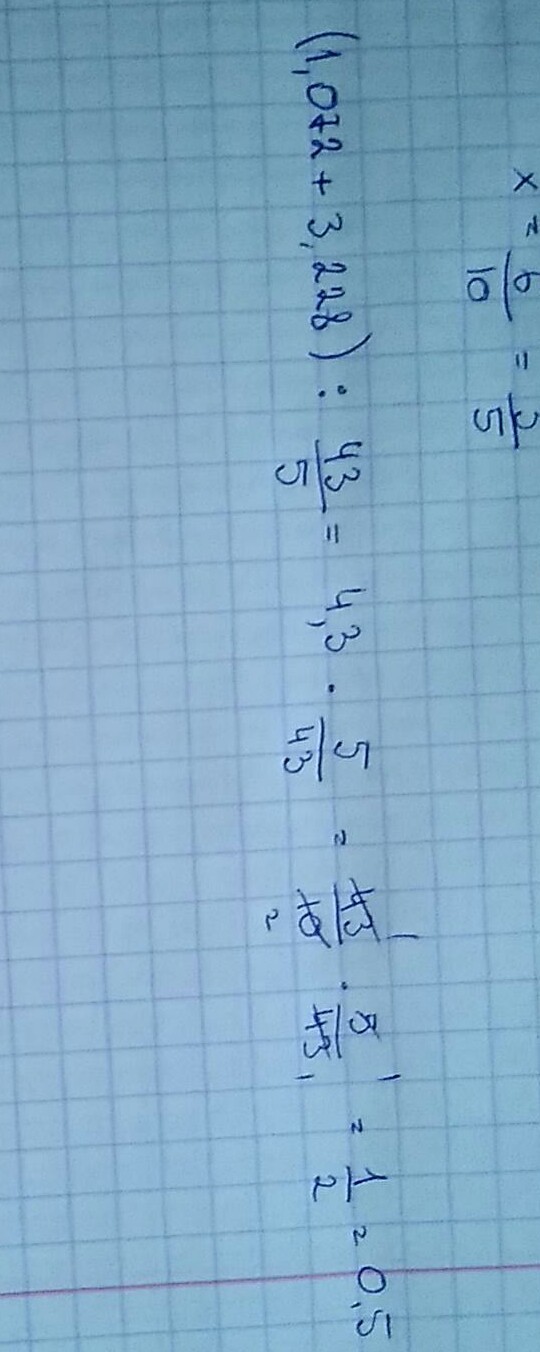 x = 6/10 = 3/5
(1,072 + 3,228) : 43/5 = 4,3 · 5/43 = 43/10 · 5/43 = 1/2 = 0,5